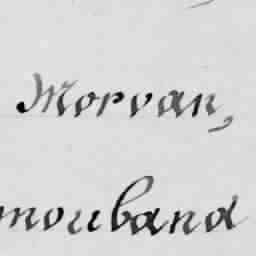 Morvan,
mouband